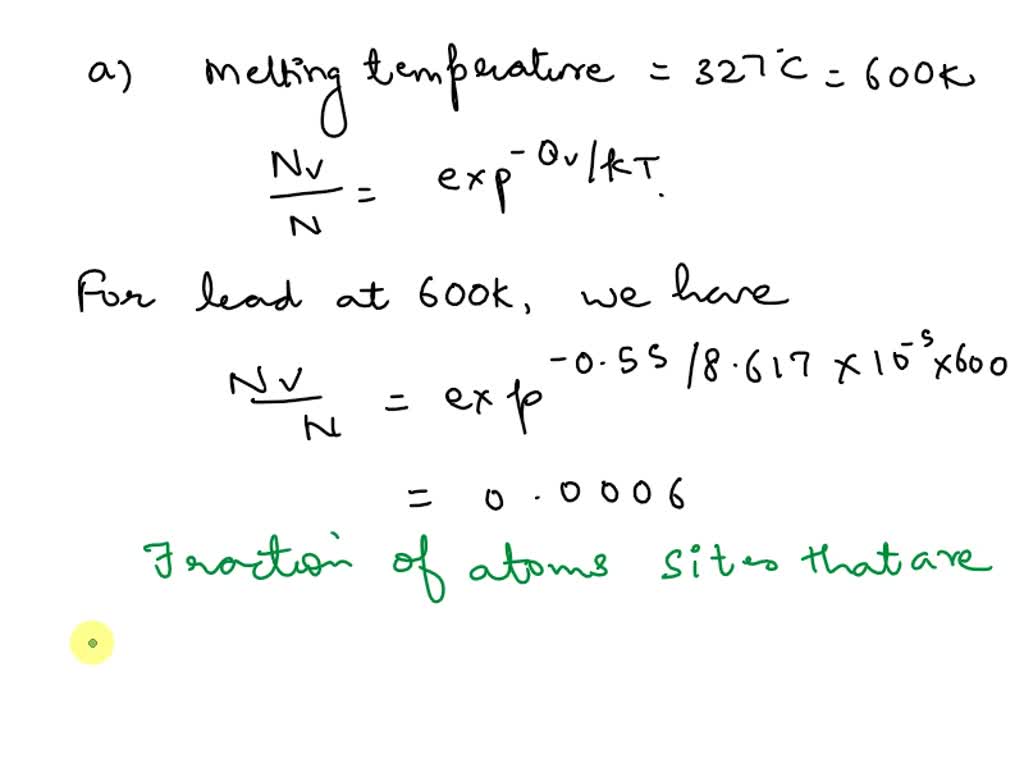 a) Melting temperature = 327°C = 600K
Nv/N = exp^-Qv/kT.
For lead at 600K, we have
Nv/N = exp^-0.55/8.617×10^-5×600
= 0.0006
Fraction of atoms sites that are